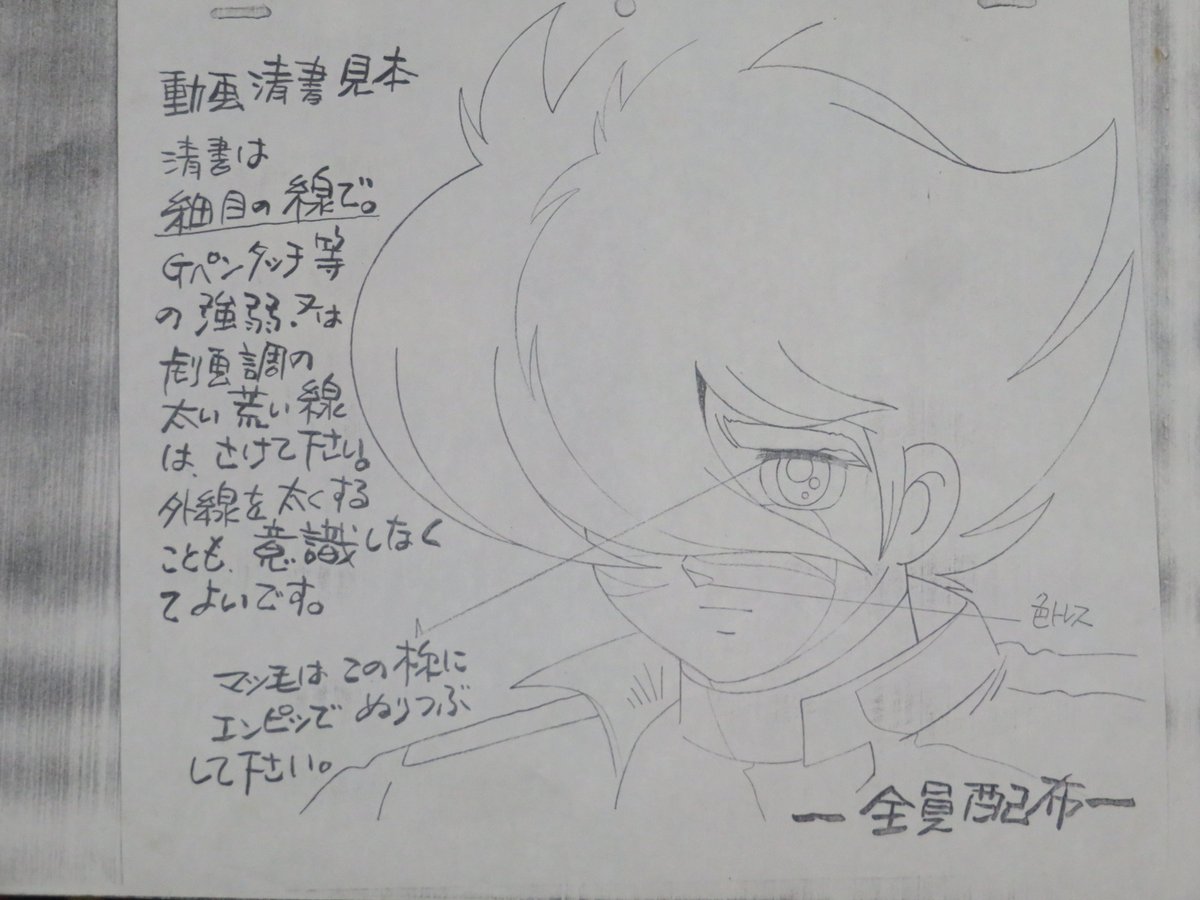 動画清書見本
清書は
細目の線で。
Gペンタッチ等
の強弱、又は
劇画調の
太い荒い線
は、さけて下さい。
外線を太くする
ことも、意識しなく
てよいです。
マツ毛はこの様に
エンピツでぬりつぶ
して下さい。
色トレス
ー全員配布ー